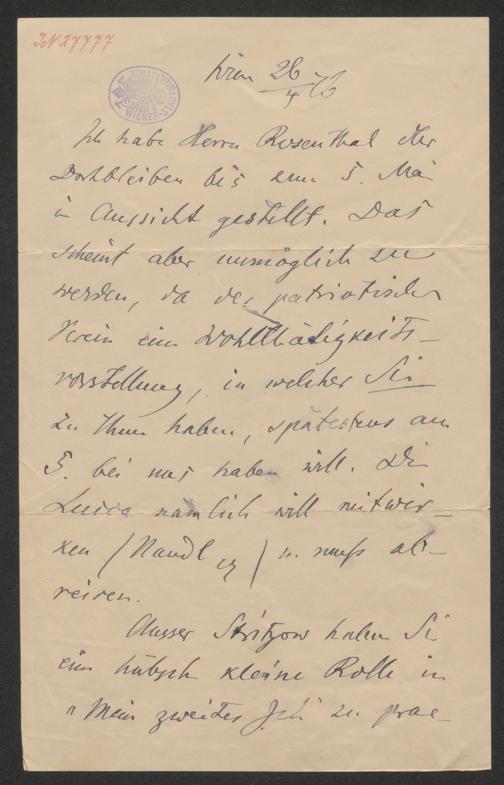 IN 27777
WIENER-STADT
Wien 26/4 76
Ich habe Herrn Rosenthal Ihr
Dortbleiben bis zum 5. Mai
in Aussicht gestellt. Das
scheint aber unmöglich zu
werden, da der patriotische
Verein eine Wohlthätigkeits-
vorstellung, in welcher Sie
zu thun haben, spätestens am
5. bei uns haben will. Die
Lucca nämlich will mitwir-
ken (Nandl) u. muß ab-
reisen.
Ausser Stritzow haben Sie
eine hübsche kleine Rolle in
"Mein zweites Ich" zu